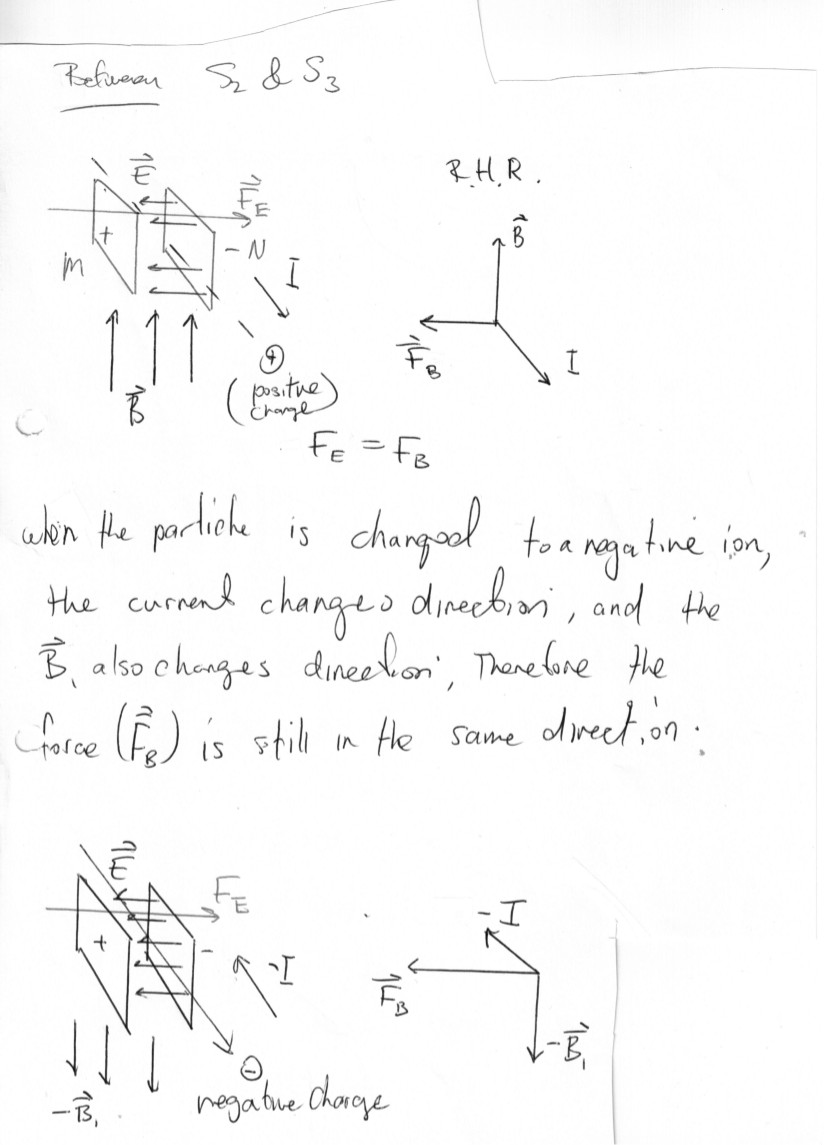 Between S₂ & S₃
R.H.R.
E⃗
F⃗E
+
m
- N
I
B⃗
+
(positive charge)
B⃗
F⃗B
I
FE = FB
when the particle is changed to a negative ion,
the current changes direction, and the
B⃗₁ also changes direction, Therefore the
force (F⃗B) is still in the same direction.
E⃗
FE
+
-
-I
-B⃗₁
negative charge
-I
F⃗B
-B⃗₁